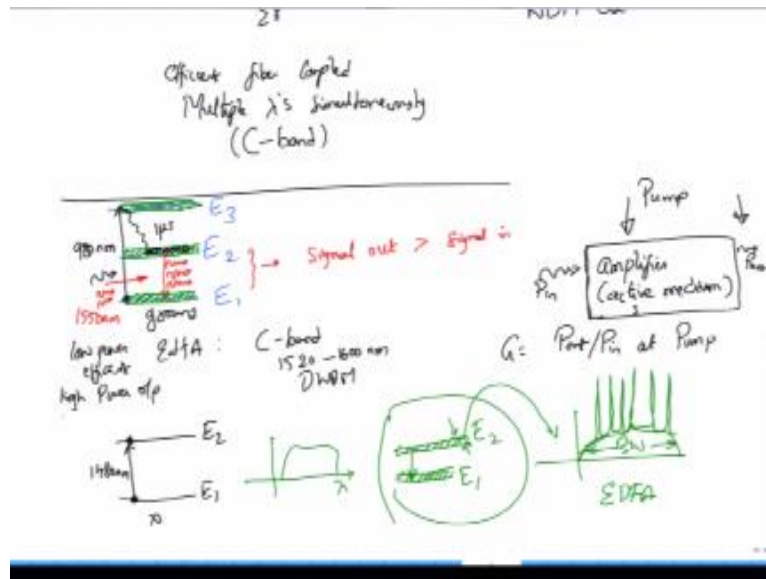 28
Efficient fiber Coupled
Multiple λ's Simultaneously
(C-band)
E3
1μs
980nm
E2
Signal out > Signal in
E1
1550nm
ground
Pump
Pin
amplifier
(active medium)
low power
efficient
high Power o/p
EdfA :
C-band
1520-1600 nm
DWDM
G= Pout/Pin at Pump
E2
1480nm
E1
λ
E2
E1
BW
EDFA